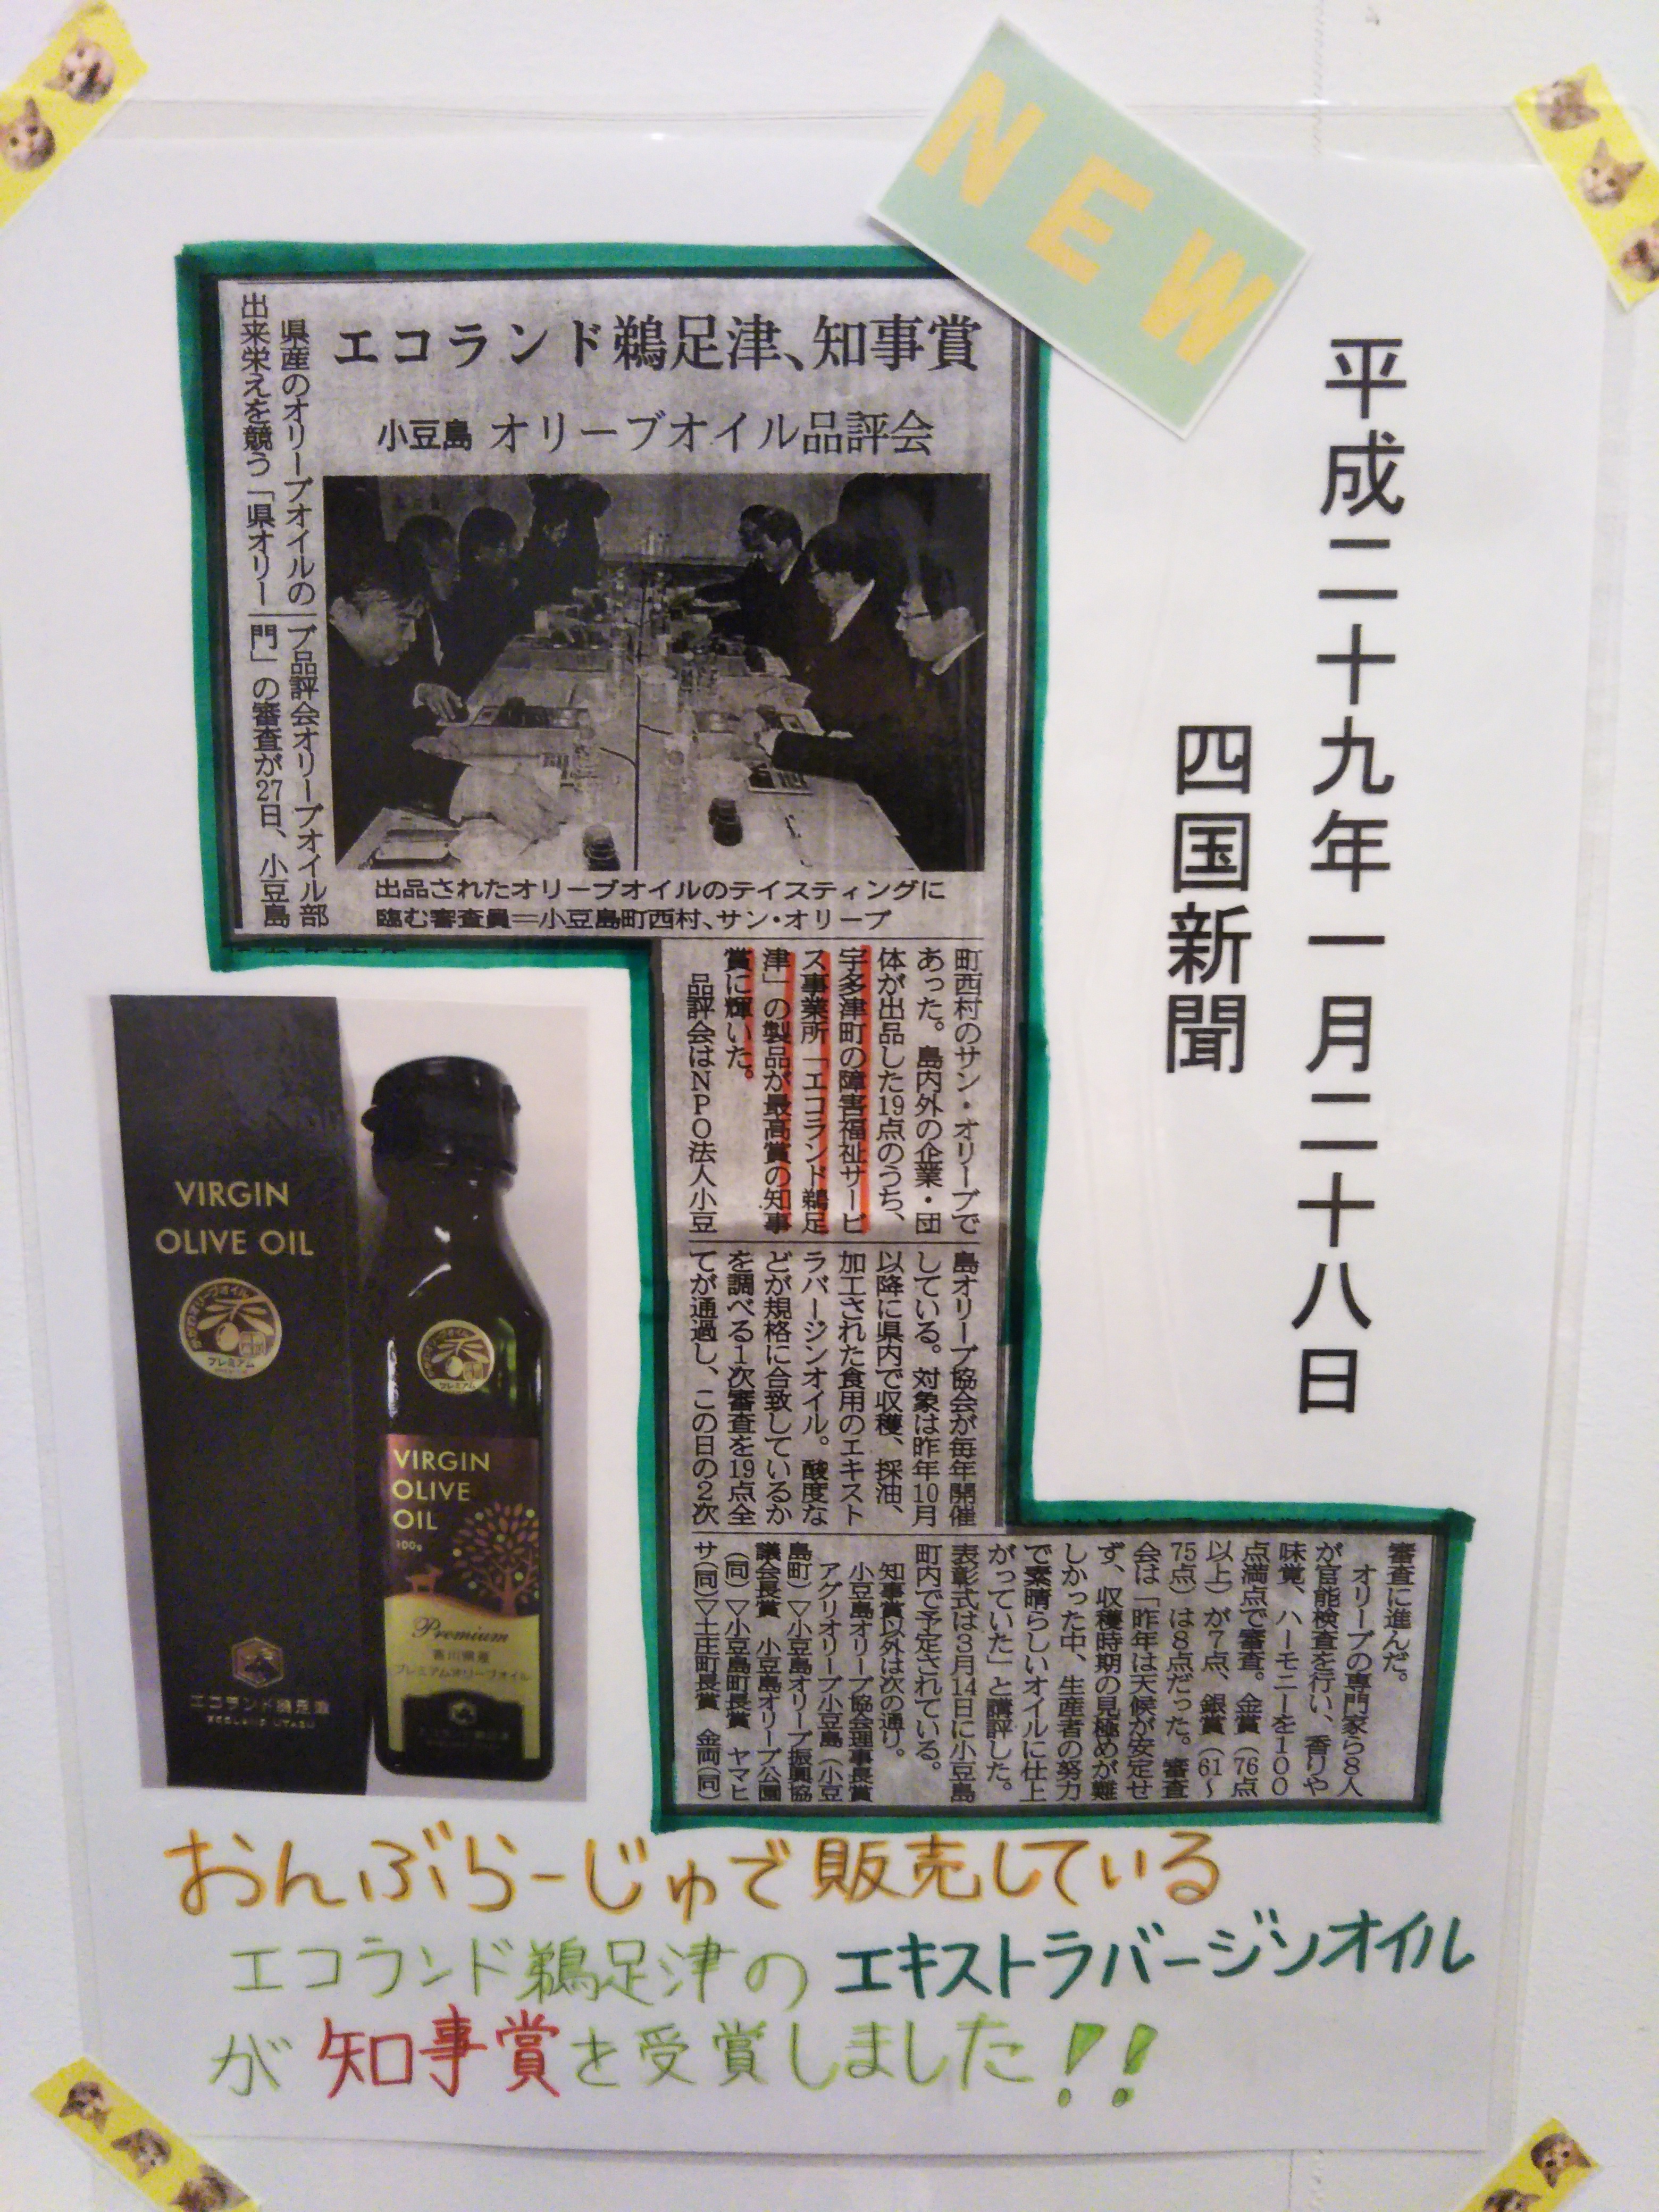 NEW
平成二十九年一月二十八日
四国新聞
エコランド鵜足津、知事賞
小豆島 オリーブオイル品評会
県産のオリーブオイルの
出来栄えを競う「県オリー
ブ品評会オリーブオイル部
門」の審査が27日、小豆島
出品されたオリーブオイルのテイスティングに
臨む審査員＝小豆島町西村、サン・オリーブ
町西村のサン・オリーブで
あった。島内外の企業・団
体が出品した19点のうち、
宇多津町の障害福祉サービ
ス事業所「エコランド鵜足
津」の製品が最高賞の知事
賞に輝いた。
品評会はNPO法人小豆
島オリーブ協会が毎年開催
している。対象は昨年10月
以降に県内で収穫、採油、
加工された食用のエキスト
ラバージンオイル。酸度な
どが規格に合致しているか
を調べる1次審査を19点全
てが通過し、この日の2次
審査に進んだ。
オリーブの専門家ら8人
が官能検査を行い、香りや
味覚、ハーモニーを100
点満点で審査。金賞（76点
以上）が7点、銀賞（61～
75点）は8点だった。審査
会は「昨年は天候が安定せ
ず、収穫時期の見極めが難
しかった中、生産者の努力
で素晴らしいオイルに仕上
がっていた」と講評した。
表彰式は3月14日に小豆島
町内で予定されている。
知事賞以外は次の通り。
小豆島オリーブ協会理事長賞
アグリオリーブ小豆島（小豆
島町）▽小豆島オリーブ振興協
議会長賞 小豆島オリーブ公園
（同）▽小豆島町長賞 ヤマヒ
サ（同）▽土庄町長賞 金両（同）
VIRGIN
OLIVE OIL
かがわオリーブオイル
プレミアム
エコランド鵜足津
ECOLAND UTAZU
プレミアム
VIRGIN
OLIVE
OIL
100g
Premium
香川県産
プレミアムオリーブオイル
エコランド鵜足津
おんぶらーじゅで販売している
エコランド鵜足津のエキストラバージンオイル
が知事賞を受賞しました!!